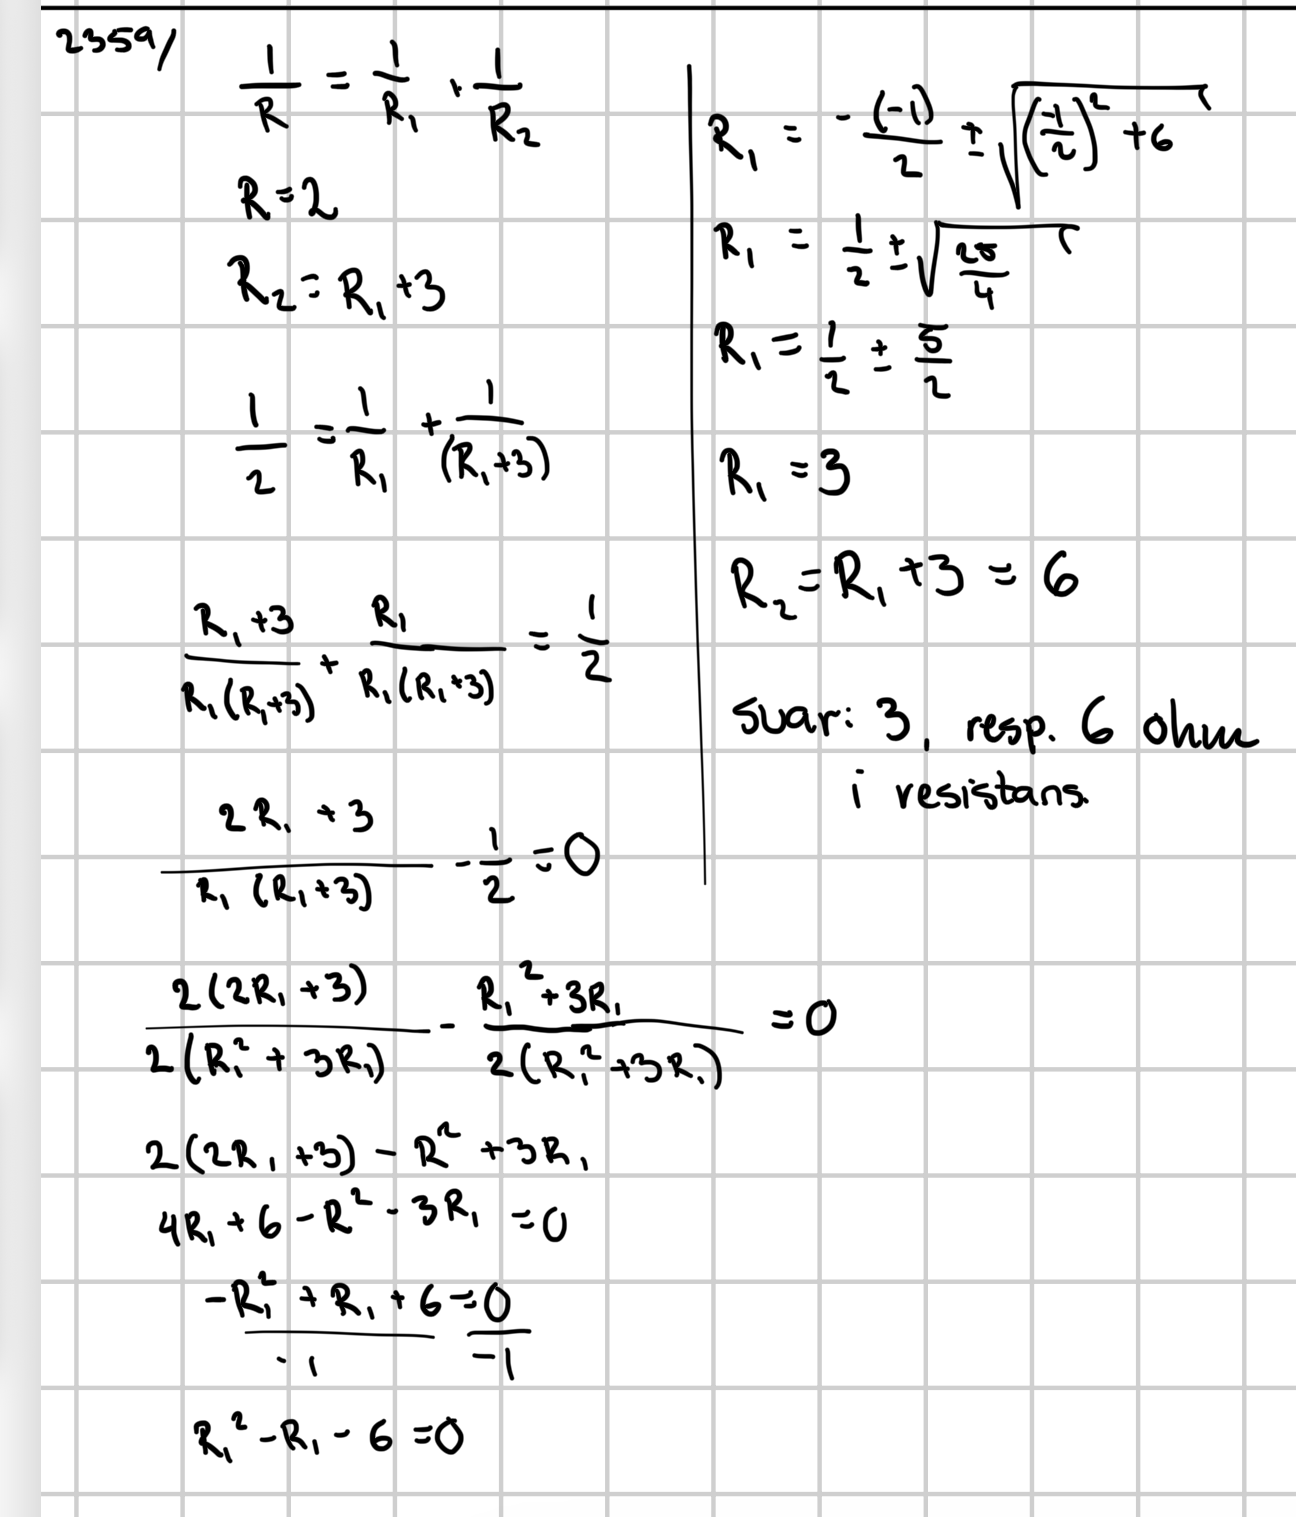 2359/
1/R = 1/R₁ + 1/R₂
R=2
R₂ = R₁+3
1/2 = 1/R₁ + 1/(R₁+3)
(R₁+3)/(R₁(R₁+3)) + R₁/(R₁(R₁+3)) = 1/2
(2R₁+3)/(R₁(R₁+3)) - 1/2 = 0
2(2R₁+3)/(2(R₁²+3R₁)) - (R₁²+3R₁)/(2(R₁²+3R₁)) = 0
2(2R₁+3) - R²+3R₁
4R₁+6-R²-3R₁ = 0
(-R₁²+R₁+6)/-1 = 0/-1
R₁²-R₁-6=0
R₁ = -(-1)/2 ± √((-1/2)²+6)
R₁ = 1/2 ± √(25/4)
R₁ = 1/2 ± 5/2
R₁ = 3
R₂ = R₁+3 = 6
svar: 3, resp. 6 ohm
i resistans.